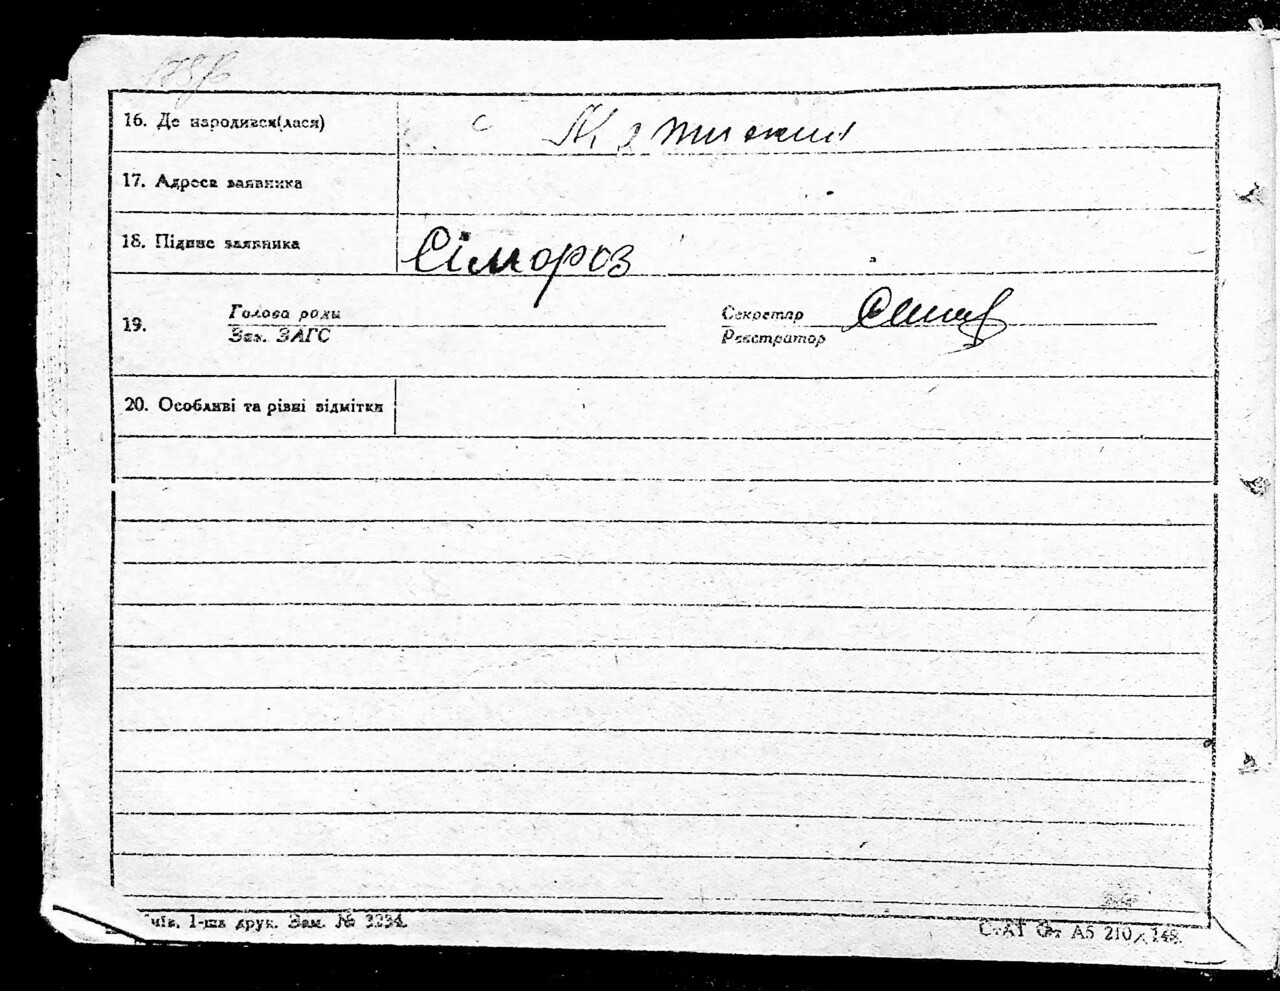 16. Де народився(лася) с
17. Адреса заявника
18. Підпис заявника Сімороз
19. Голова ради Секретар
Зав. ЗАГС Реєстратор
20. Особливі та рівні відмітки
Київ, 1-ша друк. Зам. № 3234. А5 210×148